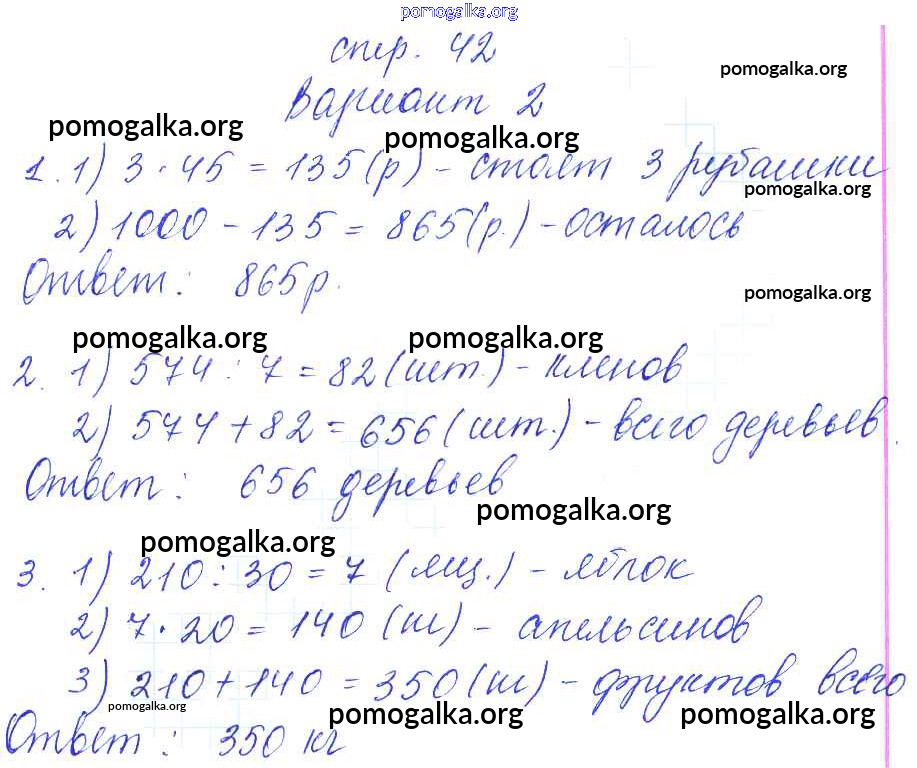 pomogalka.org
стр. 42
pomogalka.org
Вариант 2
pomogalka.org pomogalka.org
1. 1) 3 · 45 = 135 (р) - стоят 3 рубашки
pomogalka.org
2) 1000 - 135 = 865 (р.) - осталось
Ответ: 865 р.
pomogalka.org
pomogalka.org pomogalka.org
2. 1) 574 : 7 = 82 (шт.) - кленов
2) 574 + 82 = 656 (шт.) - всего деревьев.
Ответ: 656 деревьев
pomogalka.org
pomogalka.org
3. 1) 210 : 30 = 7 (ящ.) - яблок
2) 7 · 20 = 140 (ш) - апельсинов
3) 210 + 140 = 350 (ш) - фруктов всего
pomogalka.org pomogalka.org pomogalka.org
Ответ: 350 кг